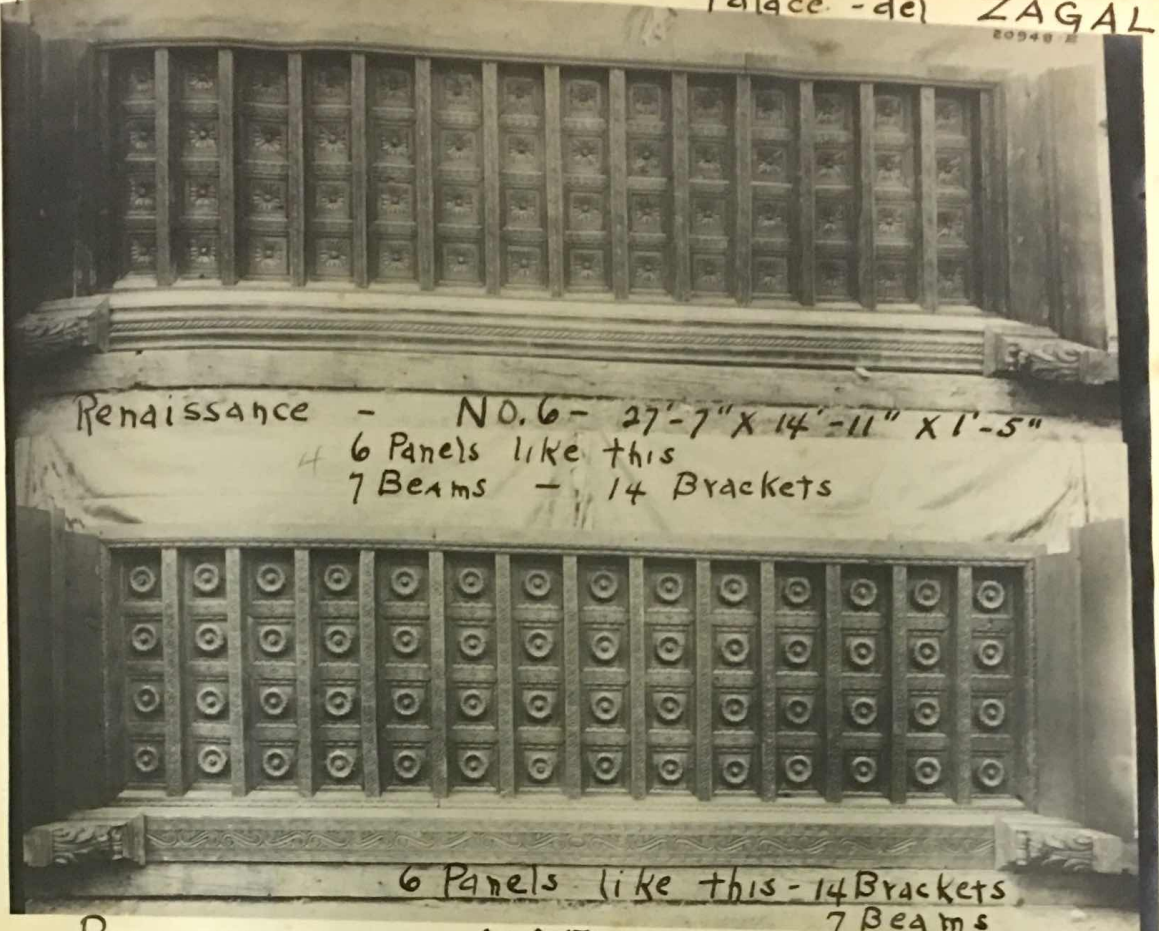 Palace - del ZAGAL
20948 E
Renaissance - NO. 6 - 27'-7" X 14'-11" X 1'-5"
4 6 Panels like this
7 Beams - 14 Brackets
6 Panels like this - 14 Brackets
7 Beams